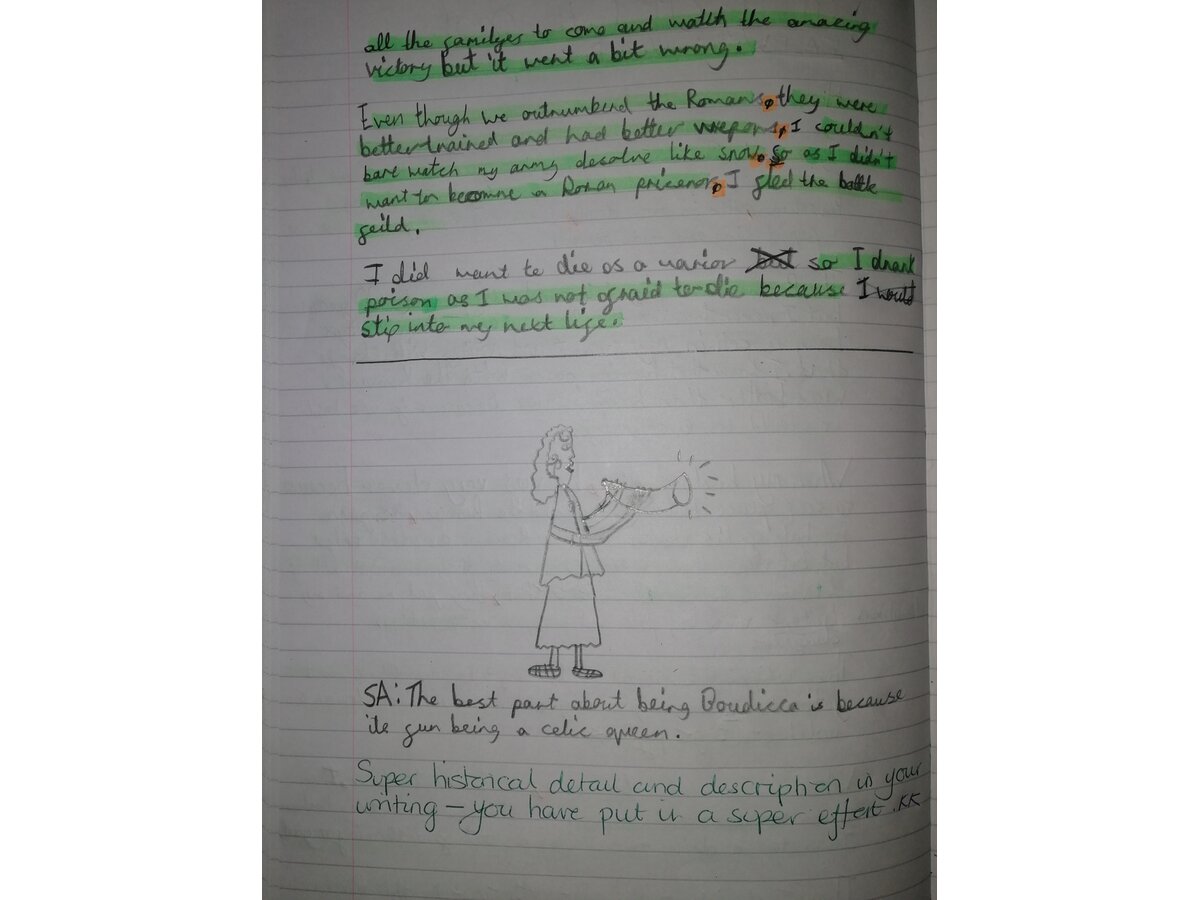 all the familyes to come and watch the amazing
victory but it went a bit wrong.
Even though we outnumberd the Romans, they were
better trained and had better weapons, I couldn't
bare watch my army desolve like snow. So as I didn't
want to become a Roman pricenor, I fled the battle
feild.
I did want to die as a warior so I drank
poison as I was not afraid to die because I would
slip into my next life.
SA: The best part about being Boudicca is because
its fun being a celic queen.
Super historical detail and description in your
writing – you have put in a super effort. KK